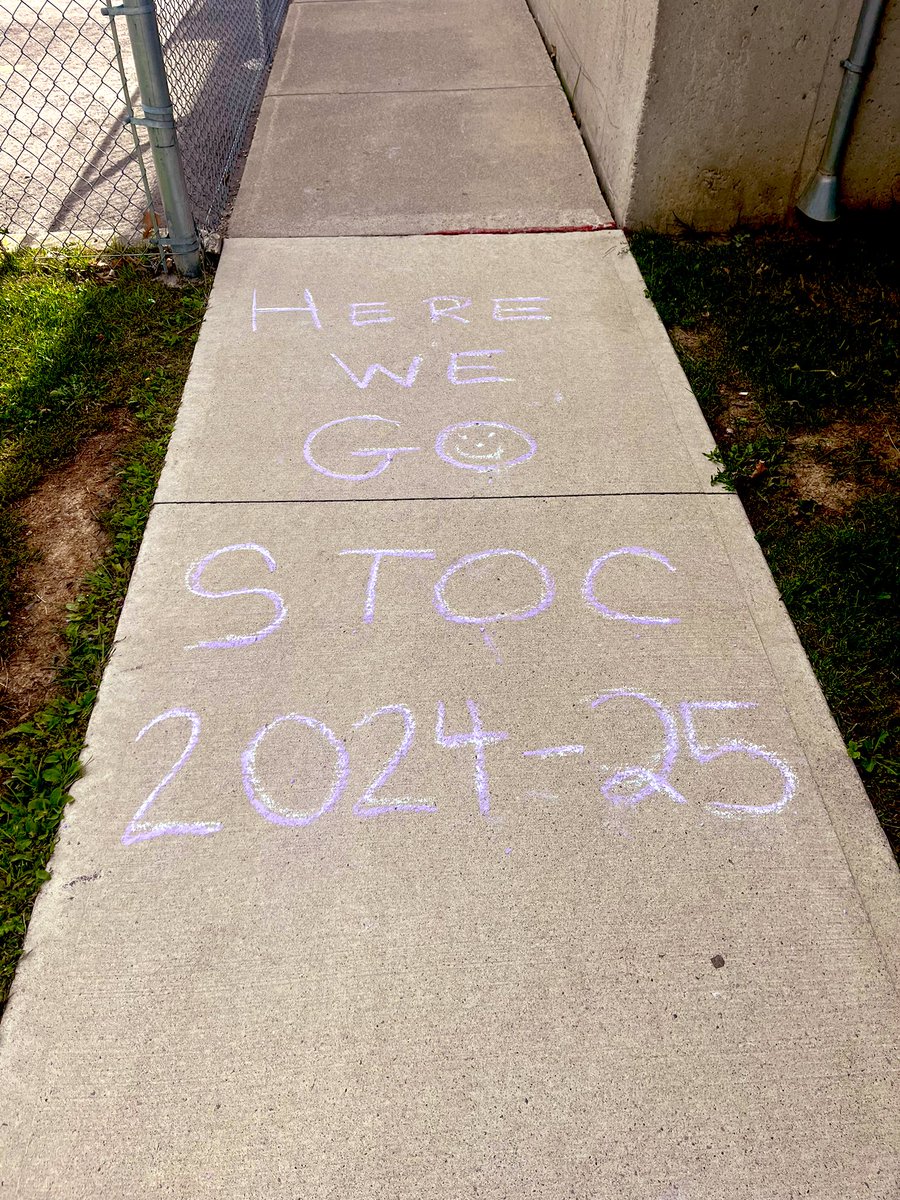 HERE
WE
GO
STOC
2024-25